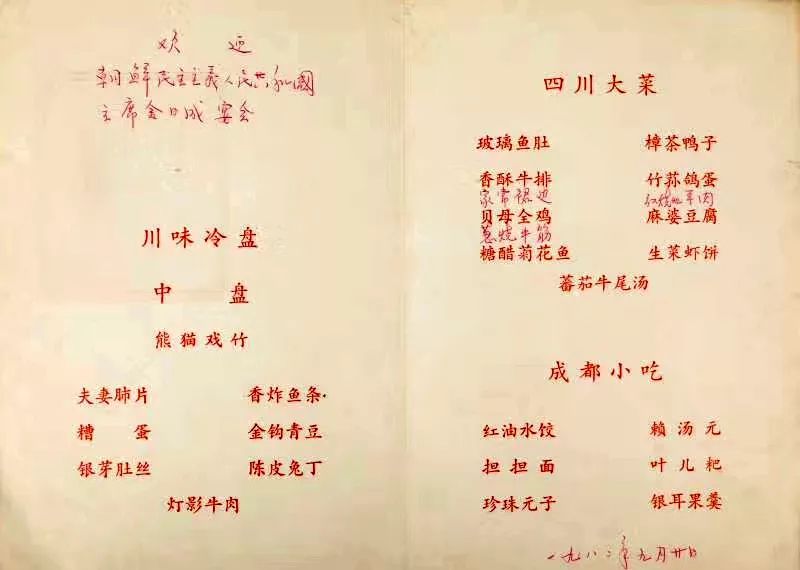 欢迎
朝鲜民主主義人民共和國
主席金日成宴会
川味冷盘
中盘
熊猫戏竹
夫妻肺片 香炸鱼条
糟蛋 金钩青豆
银芽肚丝 陈皮兔丁
灯影牛肉
四川大菜
玻璃鱼肚 樟茶鸭子
香酥牛排 竹荪鸽蛋
家常裙边 红烧 羊肉
贝母全鸡 麻婆豆腐
葱烧牛筋
糖醋菊花鱼 生菜虾饼
蕃茄牛尾汤
成都小吃
红油水饺 赖汤元
担担面 叶儿粑
珍珠元子 银耳果羹
一九八二年九月廿日